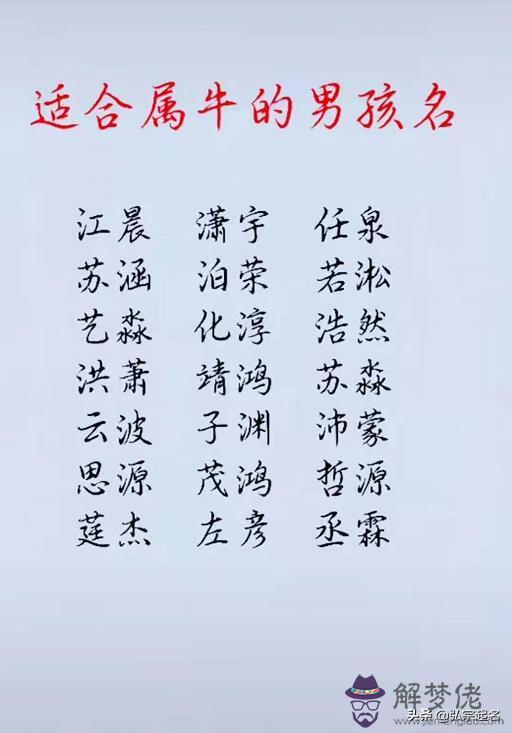 适合属牛的男孩名
江晨 潇宇 任泉
苏涵 泊荣 若淞
艺淼 化淳 浩然
洪萧 靖鸿 苏淼
云波 子渊 沛蒙
思源 茂鸿 哲源
莛杰 左彦 丞霖
解梦佬
www.jiemenglao.com
头条 @弘宗起名